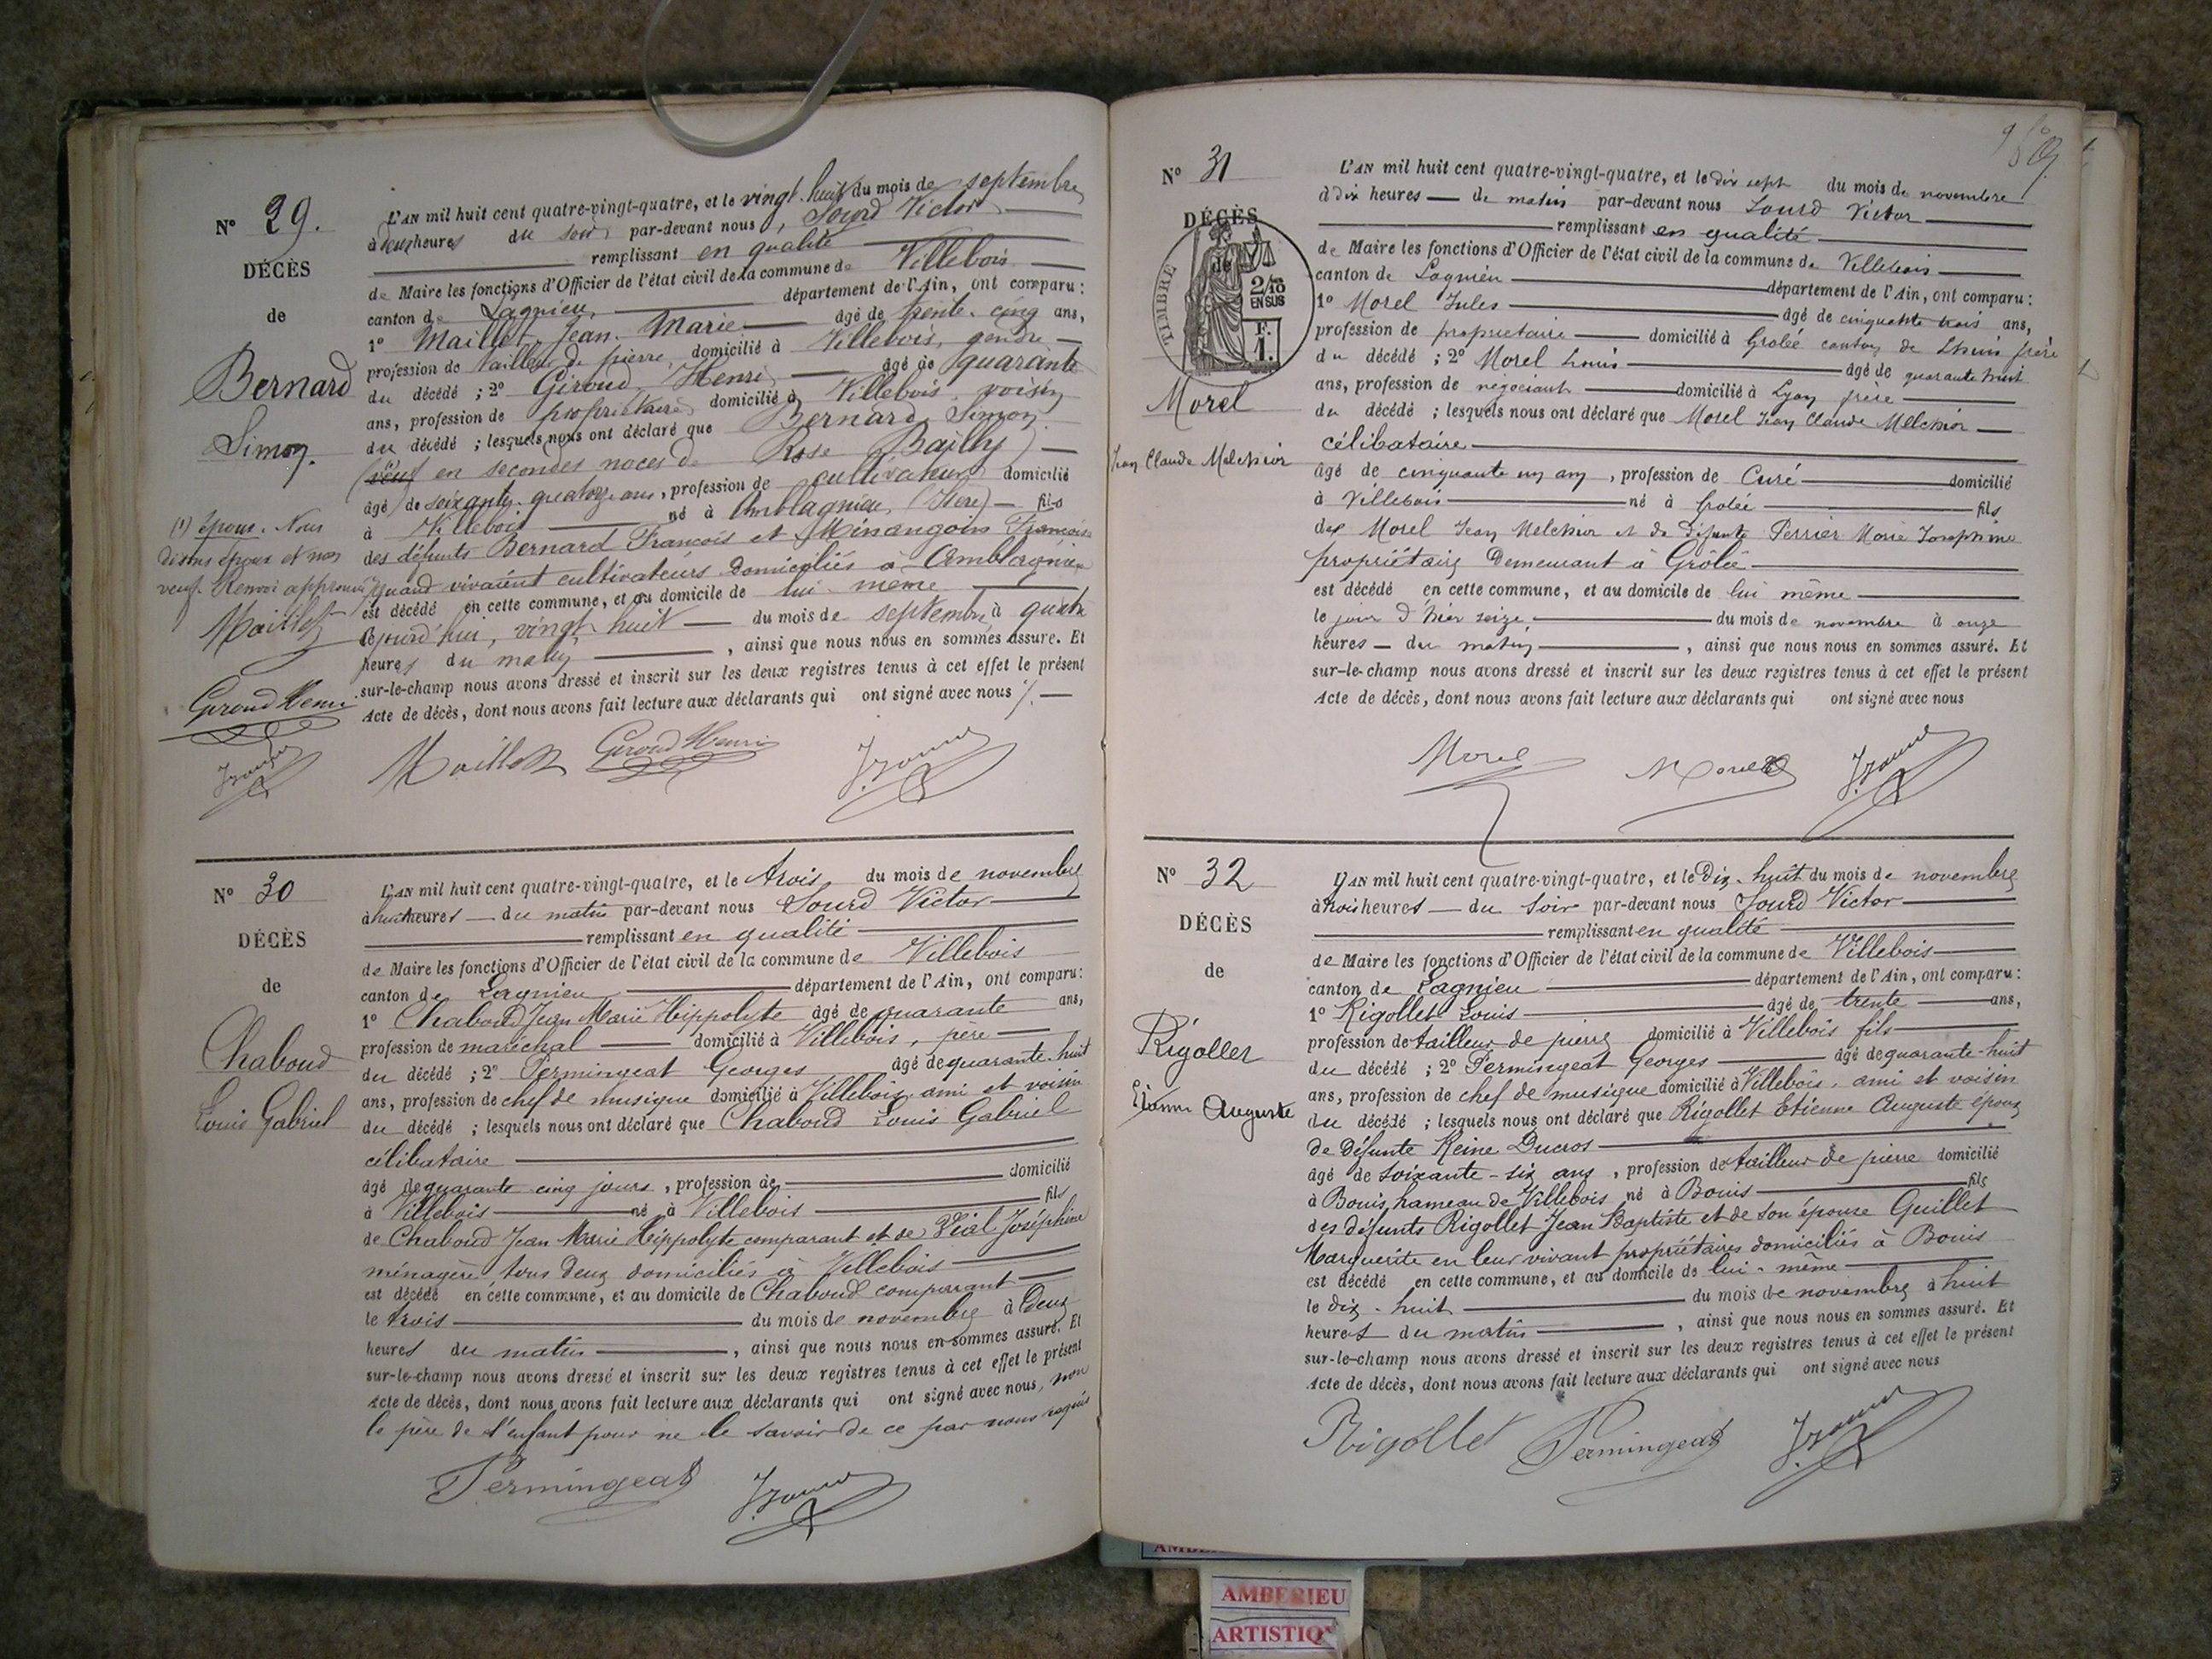 N° 29.
DÉCÈS
de
Bernard
Simon.
(1) époux. Nous
disons époux et non
veuf. Renvoi approuvé
Maillet
Giroud Henri
L'AN mil huit cent quatre-vingt-quatre, et le vingt-huit du mois de septembre
à heures du soir par-devant nous, Sourd Victor
remplissant en qualité
de Maire les fonctions d'Officier de l'état civil de la commune de Villebois
canton de Lagnieu, département de l'Ain, ont comparu:
1° Maillet Jean-Marie âgé de trente-cinq ans,
profession de tailleur de pierre domicilié à Villebois, gendre
du décédé ; 2° Giroud Henri âgé de quarante
ans, profession de propriétaire domicilié à Villebois voisin
du décédé ; lesquels nous ont déclaré que Bernard Simon
(veuf en secondes noces de Rose Bailly)
âgé de soixante-quatorze ans, profession de cultivateur domicilié
à Villebois né à Amblagnieu (Isère) fils
des défunts Bernard François et Minangoin Françoise
quand vivaient cultivateurs domiciliés à Amblagnieu
est décédé en cette commune, et au domicile de lui-même
cejourd'hui, vingt huit du mois de septembre à quatre
heures du matin, ainsi que nous nous en sommes assuré. Et
sur-le-champ nous avons dressé et inscrit sur les deux registres tenus à cet effet le présent
Acte de décès, dont nous avons fait lecture aux déclarants qui ont signé avec nous
Maillet Giroud Henri
N° 30
DÉCÈS
de
Chaboud
Louis Gabriel
L'AN mil huit cent quatre-vingt-quatre, et le trois du mois de novembre
à huit heures du matin par-devant nous Sourd Victor
remplissant en qualité
de Maire les fonctions d'Officier de l'état civil de la commune de Villebois
canton de Lagnieu département de l'Ain, ont comparu:
1° Chaboud Jean Marie Hippolyte âgé de quarante ans,
profession de maréchal domicilié à Villebois, père
du décédé ; 2° Permingeat Georges âgé de quarante-huit
ans, profession de chef de musique domicilié à Villebois ami et voisin
du décédé ; lesquels nous ont déclaré que Chaboud Louis Gabriel
célibataire
âgé de quarante cinq jours, profession de domicilié
à Villebois né à Villebois fils
de Chaboud Jean Marie Hippolyte comparant et de Vial Joséphine
ménagère, tous deux domiciliés à Villebois
est décédé en cette commune, et au domicile de Chaboud comparant
le trois du mois de novembre à deux
heures du matin, ainsi que nous nous en sommes assuré. Et
sur-le-champ nous avons dressé et inscrit sur les deux registres tenus à cet effet le présent
Acte de décès, dont nous avons fait lecture aux déclarants qui ont signé avec nous, non
le père de l'enfant pour ne le savoir de ce par nous requis
Permingeat
N° 31
DÉCÈS
de
TIMBRE
2/10
EN SUS
F.
1.
Morel
Jean Claude Melchior
L'AN mil huit cent quatre-vingt-quatre, et le dix sept du mois de novembre
à dix heures de matin par-devant nous Sourd Victor
remplissant en qualité
de Maire les fonctions d'Officier de l'état civil de la commune de Villebois
canton de Lagnieu département de l'Ain, ont comparu:
1° Morel Jules âgé de cinquante trois ans,
profession de propriétaire domicilié à Grolée canton de Lhuis frère
du décédé ; 2° Morel Louis âgé de quarante huit
ans, profession de négociant domicilié à Lyon frère
du décédé ; lesquels nous ont déclaré que Morel Jean Claude Melchior
célibataire
âgé de cinquante un ans, profession de Curé domicilié
à Villebois né à Grolée fils
de Morel Jean Melchior et de défunte Perrier Marie Josephine
propriétaire demeurant à Grôlée
est décédé en cette commune, et au domicile de lui même
le jour d'hier seize du mois de novembre à onze
heures du matin, ainsi que nous nous en sommes assuré. Et
sur-le-champ nous avons dressé et inscrit sur les deux registres tenus à cet effet le présent
Acte de décès, dont nous avons fait lecture aux déclarants qui ont signé avec nous
Morel Morel
N° 32
DÉCÈS
de
Rigollet
Etienne Auguste
L'AN mil huit cent quatre-vingt-quatre, et le dix-huit du mois de novembre
à trois heures du soir par-devant nous Sourd Victor
remplissant en qualité
de Maire les fonctions d'Officier de l'état civil de la commune de Villebois
canton de Lagnieu département de l'Ain, ont comparu:
1° Rigollet Louis âgé de trente ans,
profession de tailleur de pierre domicilié à Villebois fils
du décédé ; 2° Permingeat Georges âgé de quarante-huit
ans, profession de chef de musique domicilié à Villebois, ami et voisin
du décédé ; lesquels nous ont déclaré que Rigollet Etienne Auguste époux
de défunte Reine Ducros
âgé de soixante-six ans, profession de tailleur de pierre domicilié
à Bouis hameau de Villebois né à Bouis fils
des défunts Rigollet Jean Baptiste et de son épouse Guillet
Marguerite en leur vivant propriétaires domiciliés à Bouis
est décédé en cette commune, et au domicile de lui-même
le dix-huit du mois de novembre à huit
heures du matin, ainsi que nous nous en sommes assuré. Et
sur-le-champ nous avons dressé et inscrit sur les deux registres tenus à cet effet le présent
Acte de décès, dont nous avons fait lecture aux déclarants qui ont signé avec nous
Rigollet Permingeat
AMBERIEU
ARTISTIQ